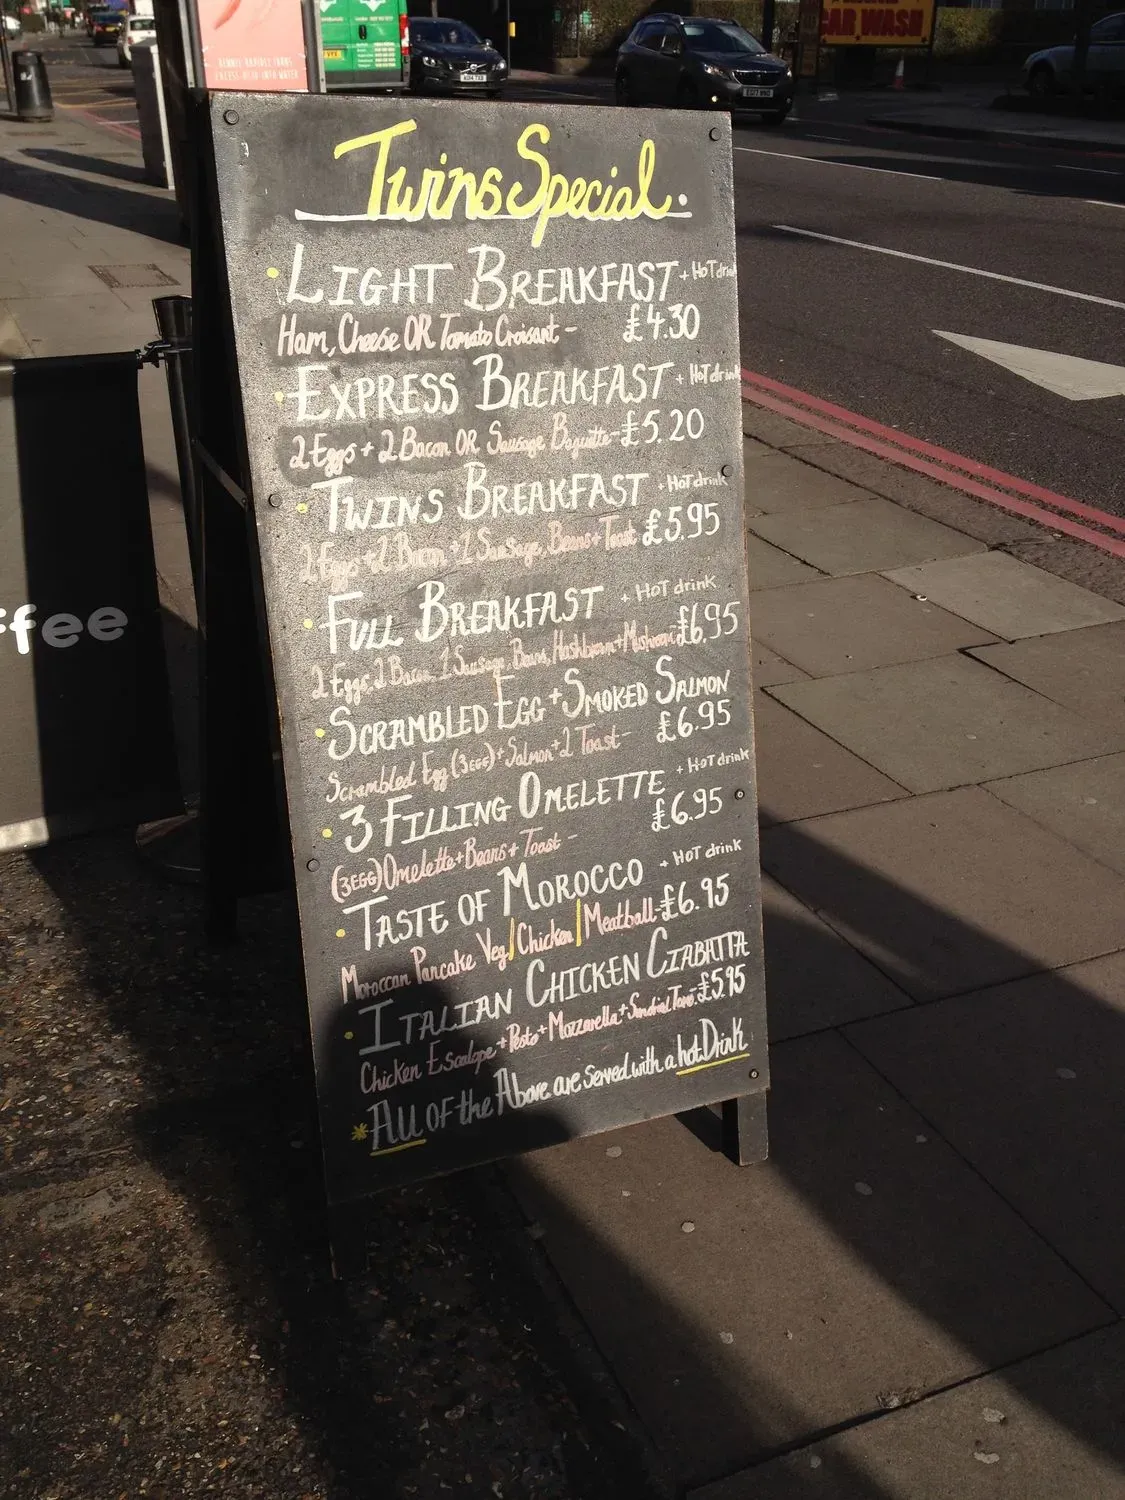 Twins Special.
• LIGHT BREAKFAST + HoT drink
Ham, Cheese OR Tomato Croisant - £4.30
• EXPRESS BREAKFAST + HoT drink
2 Eggs + 2 Bacon OR Sausage Baguette - £5.20
• TWINS BREAKFAST + HoT drink
2 Eggs + 2 Bacon + 1 Sausage, Beans + Toast £5.95
• FULL BREAKFAST + HoT drink
2 Eggs, 2 Bacon, 1 Sausage, Beans, Hashbrown + Mushroom £6.95
• SCRAMBLED EGG + SMOKED SALMON
Scrambled Egg (3EGG) + Salmon + 2 Toast - £6.95
• 3 FILLING OMELETTE + HoT drink
(3EGG) Omelette + Beans + Toast - £6.95
• TASTE OF MOROCCO + HoT drink
Moroccan Pancake Veg/Chicken/Meatball - £6.95
• ITALIAN CHICKEN CIABATTA
Chicken Escalope + Pesto + Mozzarella + Sundried Tom £5.95
* All OF the Above are served with a hot Drink
ffee
CAR WASH
EG17 WWD